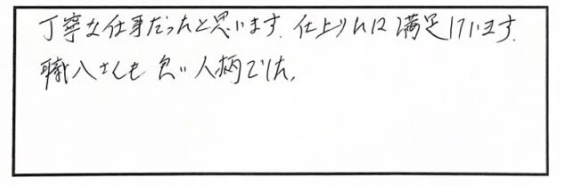 丁寧な仕事だったと思います。仕上りには満足しています。
職人さんも良い人柄でした。